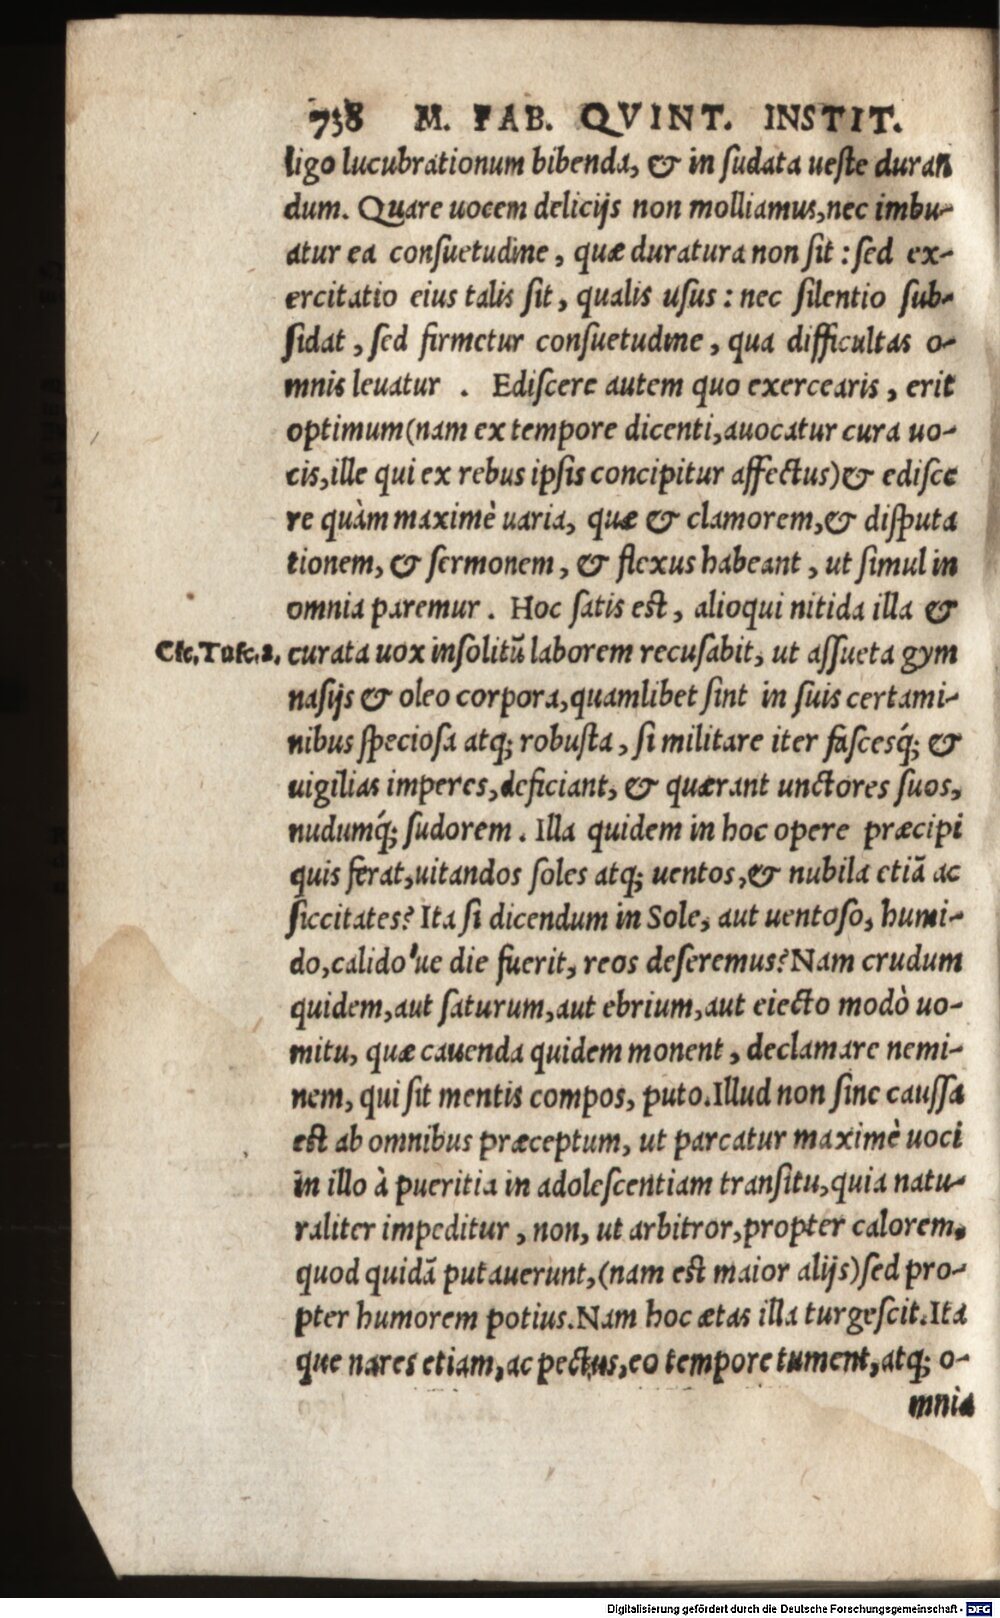 738 M. FAB. QVINT. INSTIT.
ligo lucubrationum bibenda, & in sudata ueste duran
dum. Quare uocem delicijs non molliamus, nec imbu-
atur ea consuetudine, quæ duratura non sit: sed ex-
ercitatio eius talis sit, qualis usus: nec silentio sub-
sidat, sed firmetur consuetudine, qua difficultas o-
mnis leuatur. Ediscere autem quo exercearis, erit
optimum (nam ex tempore dicenti, auocatur cura uo-
cis, ille qui ex rebus ipsis concipitur affectus) & edisce
re quàm maximè uaria, quæ & clamorem, & disputa
tionem, & sermonem, & flexus habeant, ut simul in
omnia paremur. Hoc satis est, alioqui nitida illa &
Cic. Tusc. 2. curata uox insolitũ laborem recusabit, ut assueta gym
nasijs & oleo corpora, quamlibet sint in suis certami-
nibus speciosa atq; robusta, si militare iter fascesq́; &
uigilias imperes, deficiant, & quærant unctores suos,
nudumq́; sudorem. Illa quidem in hoc opere præcipi
quis ferat, uitandos soles atq; uentos, & nubila etiã ac
siccitates? Ita si dicendum in Sole, aut uentoso, humi-
do, calido'ue die fuerit, reos deseremus? Nam crudum
quidem, aut saturum, aut ebrium, aut eiecto modò uo-
mitu, quæ cauenda quidem monent, declamare nemi-
nem, qui sit mentis compos, puto. Illud non sine caussa
est ab omnibus præceptum, ut parcatur maximè uoci
in illo à pueritia in adolescentiam transitu, quia natu-
raliter impeditur, non, ut arbitror, propter calorem,
quod quidã putauerunt, (nam est maior alijs) sed pro-
pter humorem potius. Nam hoc ætas illa turgescit. Ita
que nares etiam, ac pectus, eo tempore tument, atq; o-
mnia
Digitalisierung gefördert durch die Deutsche Forschungsgemeinschaft - DFG